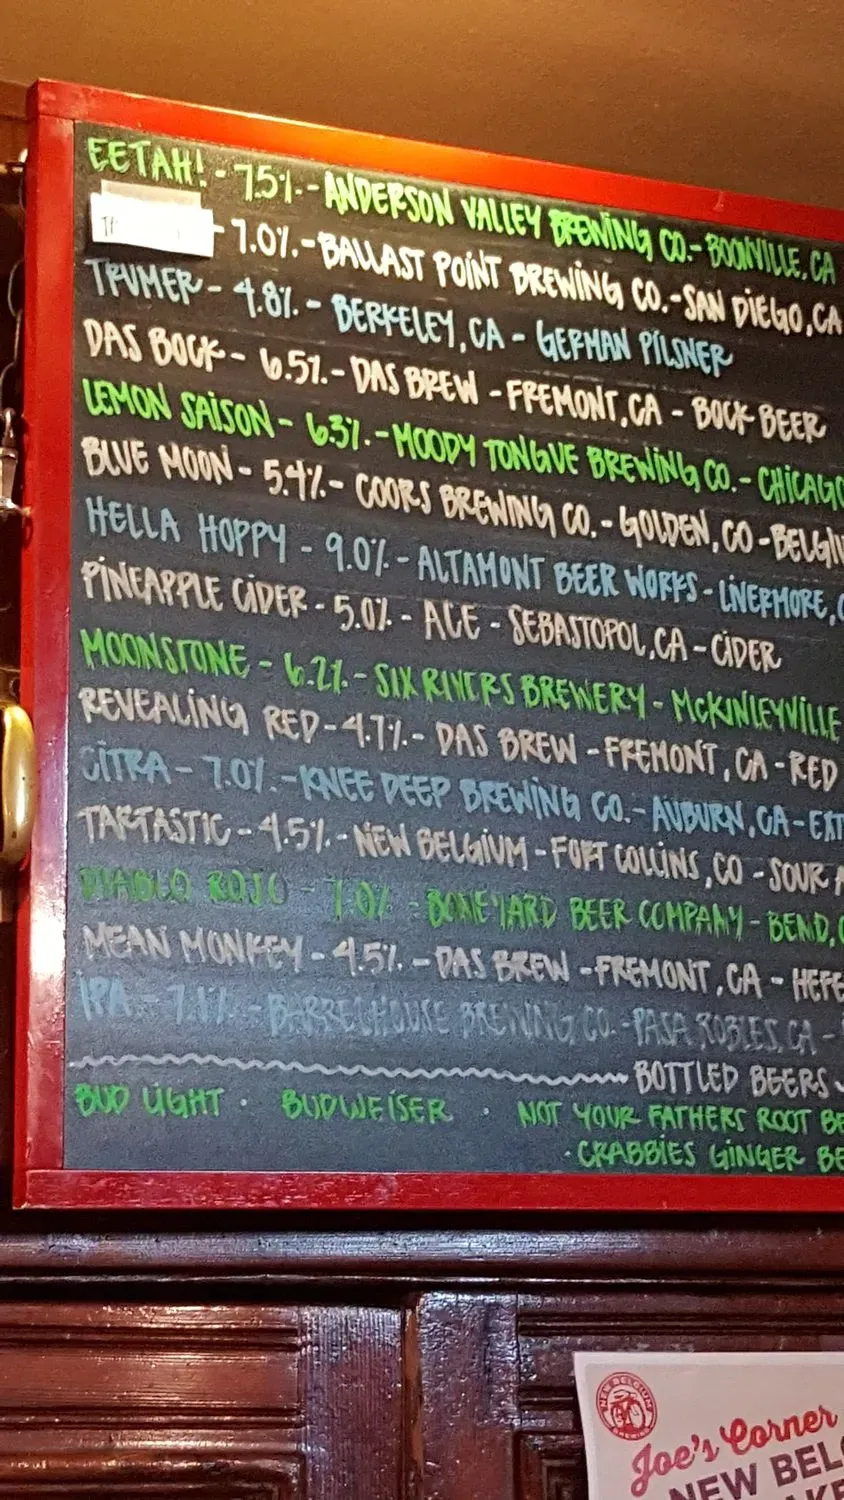 EETAH! - 7.5%. - ANDERSON VALLEY BREWING CO. - BOONVILLE, CA
- 7.0%. - BALLAST POINT BREWING CO. - SAN DIEGO, CA
TRUMER - 4.8%. - BERKELEY, CA - GERMAN PILSNER
DAS BOCK - 6.5%. - DAS BREW - FREMONT, CA - BOCK BEER
LEMON SAISON - 6.3%. - MOODY TONGUE BREWING CO. - CHICAGO
BLUE MOON - 5.4%. - COORS BREWING CO. - GOLDEN, CO - BELGI
HELLA HOPPY - 9.0%. - ALTAMONT BEER WORKS - LIVERMORE, C
PINEAPPLE CIDER - 5.0%. - ACE - SEBASTOPOL, CA - CIDER
MOONSTONE - 6.2%. - SIX RIVERS BREWERY - MCKINLEYVILLE
REVEALING RED - 4.7%. - DAS BREW - FREMONT, CA - RED
CITRA - 7.0%. - KNEE DEEP BREWING CO. - AUBURN, CA - EXT
TARTASTIC - 4.5%. - NEW BELGIUM - FORT COLLINS, CO - SOUR A
DIABLO ROJO - 7.0% - BONEYARD BEER COMPANY - BEND, O
MEAN MONKEY - 4.5%. - DAS BREW - FREMONT, CA - HEFE
IPA - 7.1% - BARRELHOUSE BREWING CO. - PASA ROBLES, CA -
BOTTLED BEERS
BUD LIGHT · BUDWEISER · NOT YOUR FATHERS ROOT BE
· CRABBIES GINGER BE
NEW BELGIUM BREWING
Joe's Corner
NEW BEL